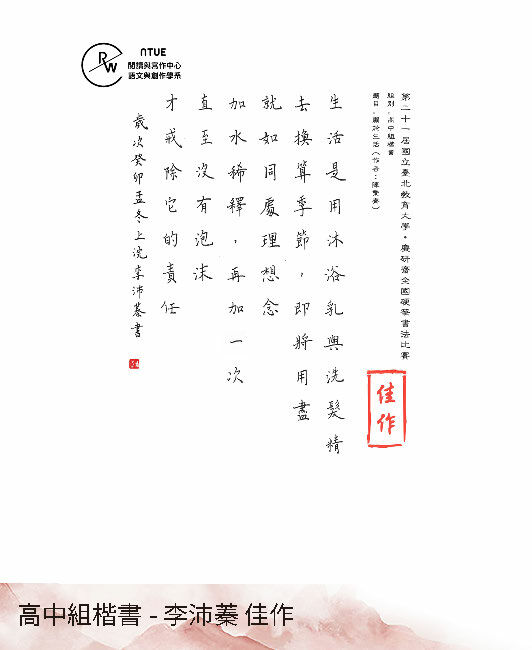 NTUE
RW
閱讀與寫作中心
語文與創作學系
第二十一屆國立臺北教育大學•慶研齋全國硬筆書法比賽
組別：高中組楷書
生活是用沐浴乳與洗髮精
去換算季節，即將用盡
就如同處理想念
加水稀釋，再加一次
直至沒有泡沫
才戒除它的責任
歲次癸卯孟冬上浣李沛蓁書
佳作
高中組楷書 - 李沛蓁 佳作